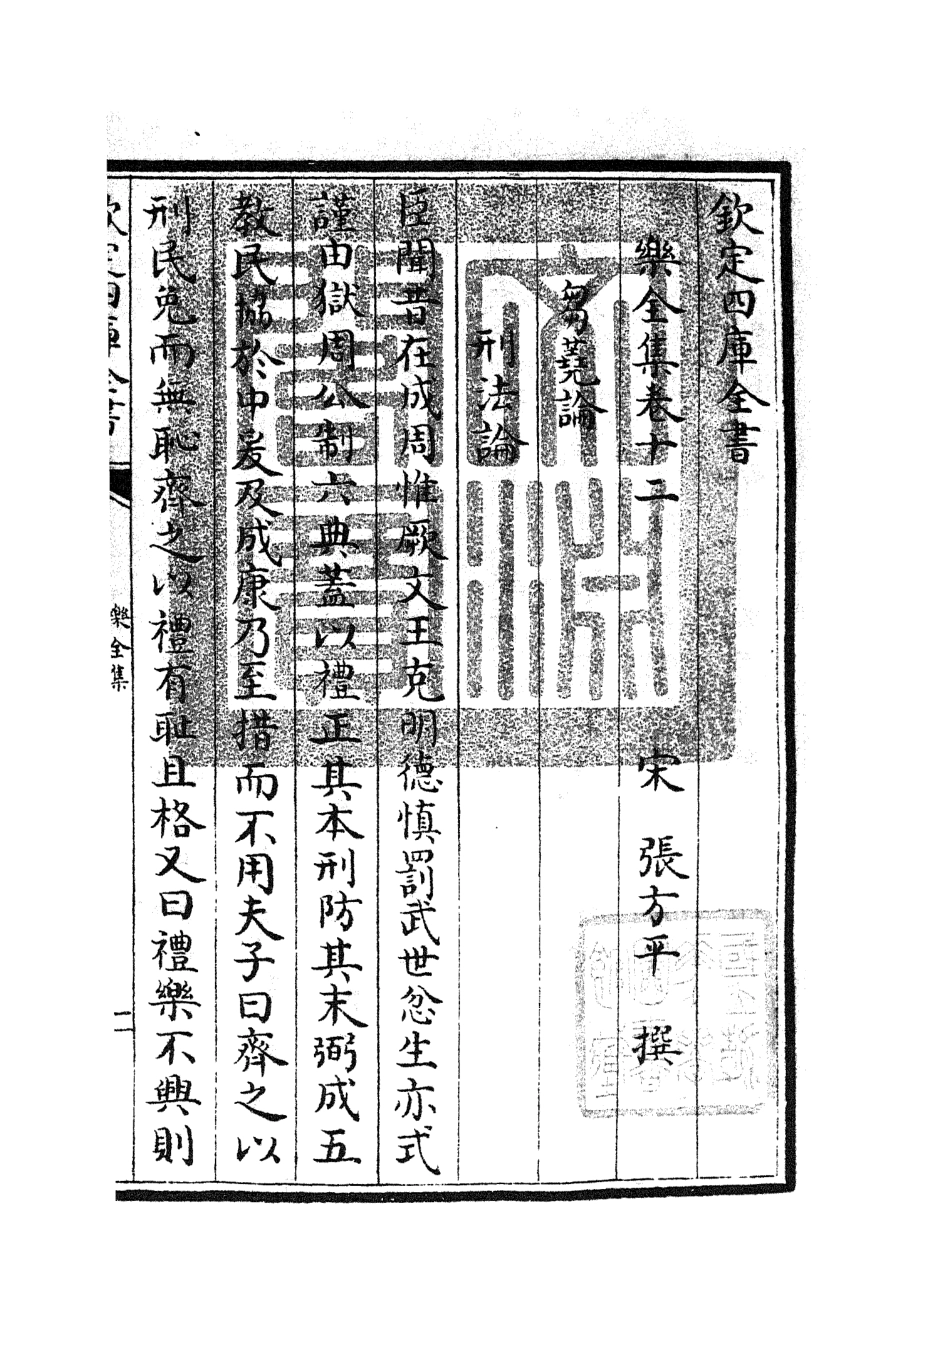 欽定四庫全書
樂全集卷十二
宋 張方平 撰
芻蕘論
刑法論
臣聞昔在成周惟厥文王克明德慎罰武世忿生亦式
謹由獄周公制六典蓋以禮正其本刑防其末弼成五
教民協於中爰及成康乃至措而不用夫子曰齊之以
刑民免而無恥齊之以禮有耻且格又曰禮樂不興則
欽定四庫全書
樂全集
二